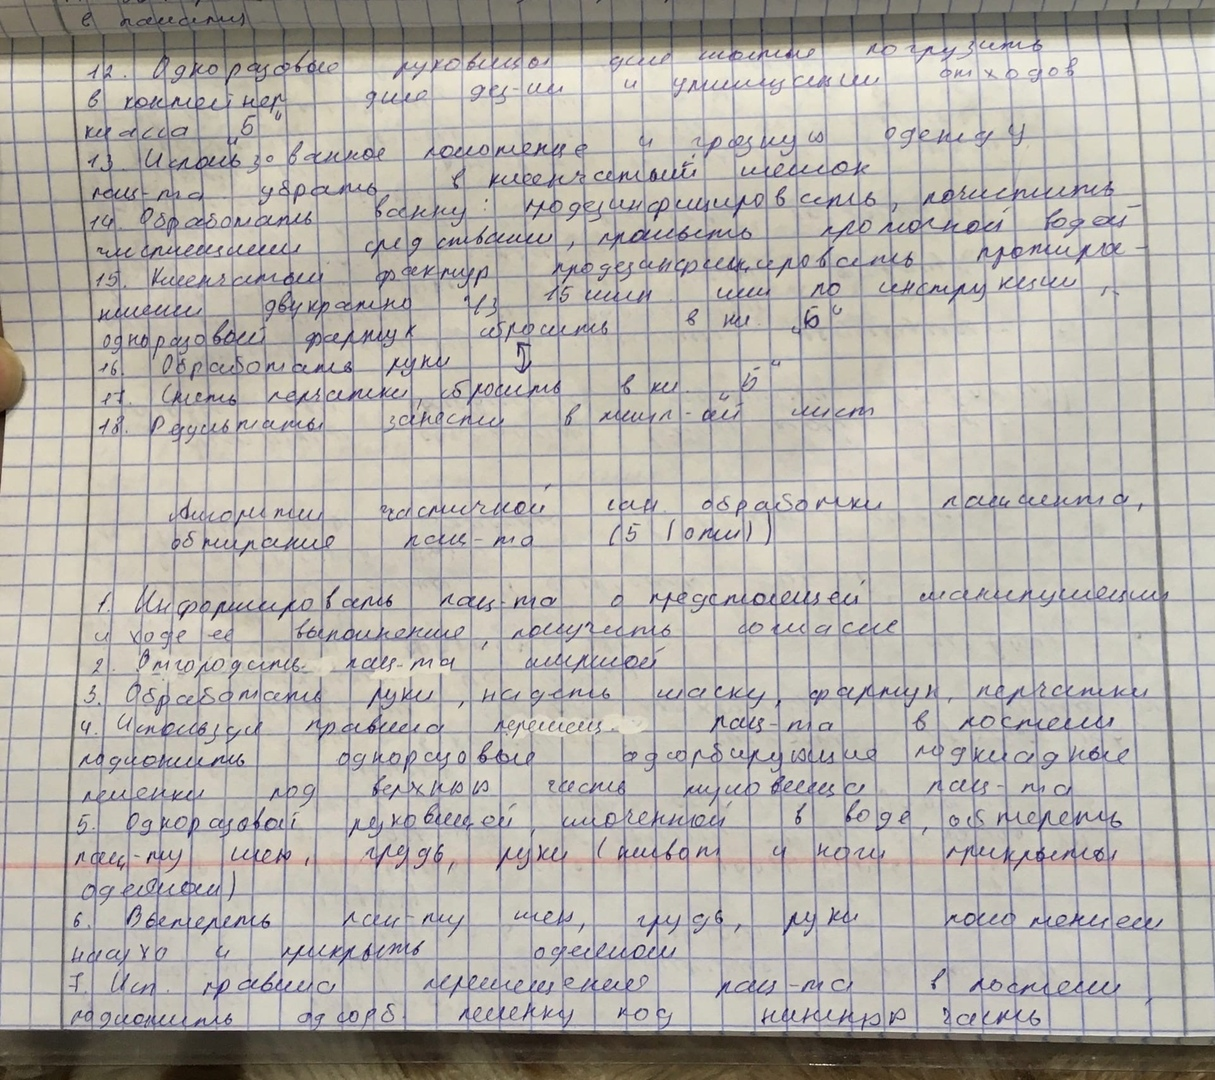 в палату
12. Одноразовые руковицы для мытья погрузить
в контейнер для дез-ии и утилизации отходов
класса "Б"
13. Использованное полотенце и грязную одежду
пац-та убрать в клеенчатый мешок
14. Обработать ванну: продезинфицировать, почистить
чистящими средствами, промыть проточной водой
15. Клеенчатый фартук продезинфицировать протира-
нием двукратно ч/з 15 мин или по инструкции,
одноразовый фартук сбросить в кл. "Б"
16. Обработать руки
17. Снять перчатки, сбросить в кл. "Б"
18. Результаты занести в лист
Алгоритм частичной сан. обработки пациента,
обтирание пац-та (5)
1. Информировать пац-та о предстоящей манипуляции
и ходе ее выполнение, получить согласие
2. Отгородить пац-та ширмой
3. Обработать руки, надеть маску, фартук, перчатки
4. Используя правила перемещ. пац-та в постели
подложить одноразовые адсорбирующие подкладные
пеленки под верхнюю часть туловища пац-та
5. Одноразовой руковицой, смоченной в воде, обтереть
пац-ту шею, грудь, руки (живот и ноги прикрыты
одеялом)
6. Вытереть пац-ту шею, грудь, руки полотенцем
насухо и прикрыть одеялом
7. Исп. правила перемещения пац-та в постели,
подложить адсорб. пеленку под нижнюю часть